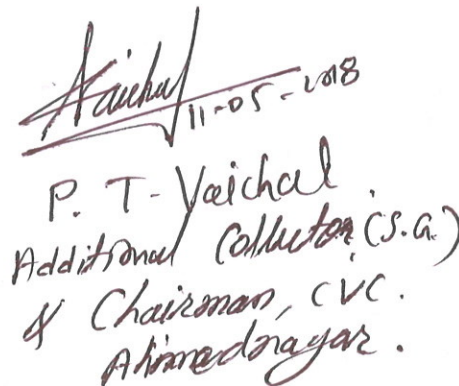 11-05-2018
P. T. Vaichal
Additional Collector (S.G.)
& Chairman, CVC.
Ahmednagar.